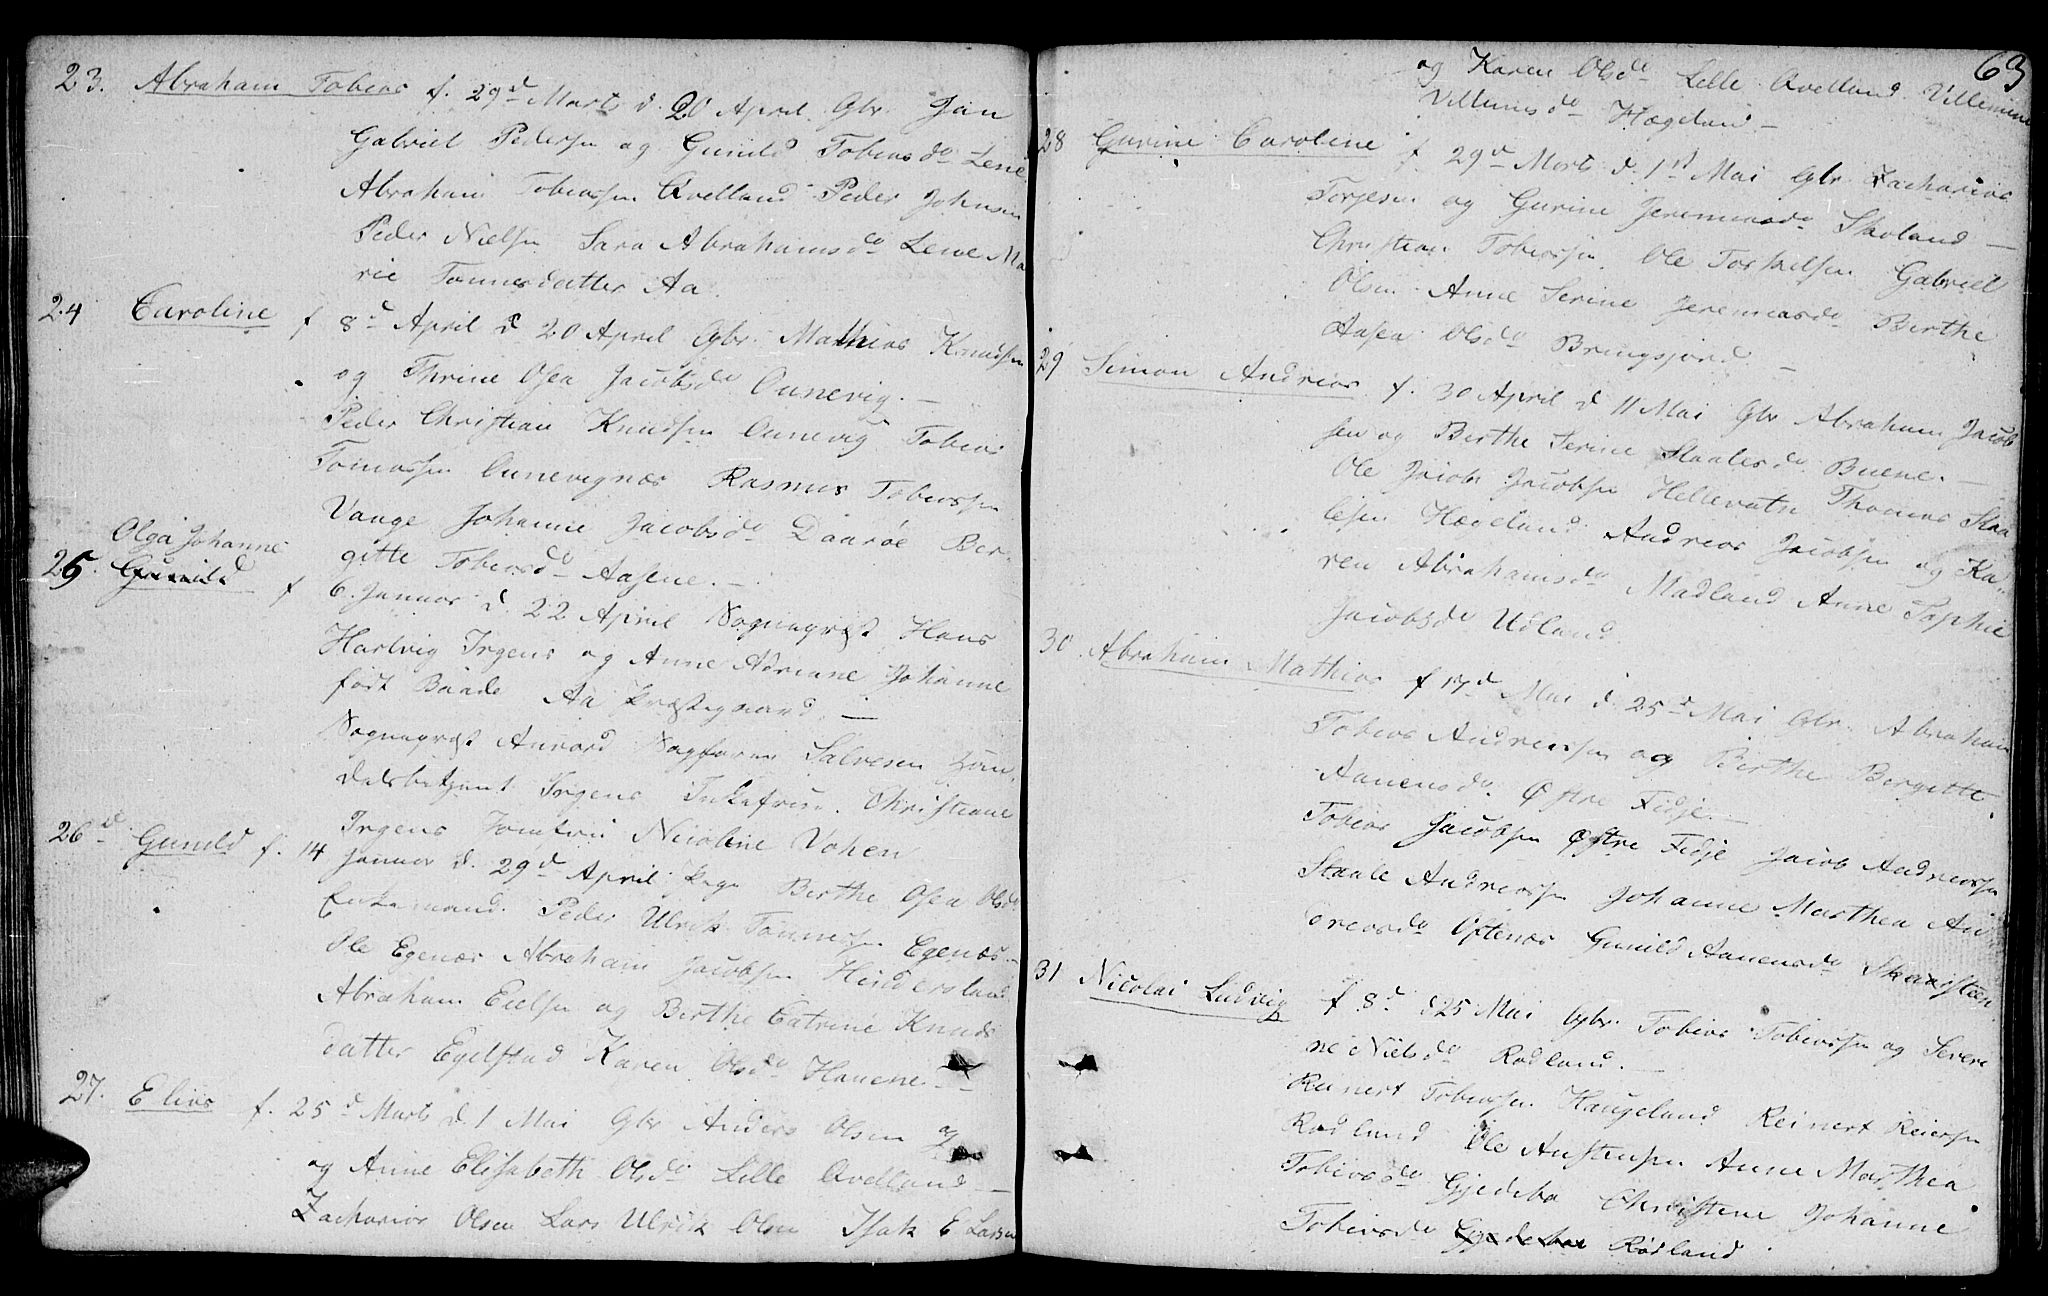 23. Abraham Tobias f. 29d Marts d. 20 April. Gbr. Jan
Gabriel Pedersen og Gunild Tobiasda Lene
Abraham Tobiassen Qvelland Peder Johnsen
Peder Nielsen Sara Abrahamsda Lene Ma
rie Tønnesdatter Aa.
24 Caroline f 8d April d 20 April Gbr. Mathias Knudsen
og Thrine Osea Jacobsda Ounevig. —
Peder Christian Knudsen Ounevig Tobias
Tomassen Ounevignæs Rasmus Tobiassen
Vange Johanne Jacobsda Daarøe Ber-
gitte Tobiasda Aasene. —
Olga Johanne
25. Gunild f 6. Januar d. 22 April Sognepræst Hans
Hartvig Irgens og Anne Adriane Johanne
født Baade Aa Præstegaard. —
Sognepræst Sagfører Salvesen Han-
delsbetjent Irgens Enkefrue Christiane
Irgens Jomfru Nicoline
26d Gunild f. 14 Januar d. 29d April Berthe Osea Olsda
Enkemand Peder Ulrik Tønnessen Egenæs —
Ole Egenæs Abraham Jacobsen Hindersland
Abraham Eielsen og Berthe Catrine Knuds
datter Egelstad Karen Olsda Hauene. —
27. Elias f. 25d Marts d. 1 Mai Gbr Anders Olsen og
og Anne Elisabeth Olsda Lille Qvelland —
Zacharias Olsen Lars Ulrik Olsen Isak E Larsen
63
og Karen Olsda Lille Qvelland Villemine
Villumsda Hægeland —
28 Gurine Caroline f 29d Marts d. 1st Mai Gbr. Zacharias
Torjesen og Gurine Jeremiasda Skoland —
Christian Tobiassen Ole Torkelsen Gabriel
Olsen Anne Serine Jeremiasda Berthe
Aasea Olsda Bringsjord —
29 Simon Andreas f. 30 April d 11 Mai Gbr Abraham Jacob
sen og Berthe Serine Staalesda Buene. —
Ole Jacob Jacobsen Hellevatn Thomas Staa
lesen Hægeland Andreas Jacobsen og Ka-
ren Abrahamsda Madland Anne Sophie
Jacobsda Udland
30. Abraham Mathias f 17d Mai d. 25d Mai Gbr. Abraham
Tobias Andreassen og Berthe Bergitte
Aanensda Østre Fidje. —
Tobias Jacobsen Østre Fidje Jacob Andreassen
Staale Andreassen Johanne Marthea An
dreasda Oftenæs Gunild Aanensda Skarsteen
31 Nicolai Ludvig f 8d d 25 Mai Gbr Tobias Tobiassen og Severi
ne Nielsda Rødland. —
Reinert Tobiassen Haugeland Reinert Reiersen
Rødland Ole Anstensen Anne Marthea
Tobiasda Gjedebo Christene Johanne
Tobiasda Gjedeboe Rødland.